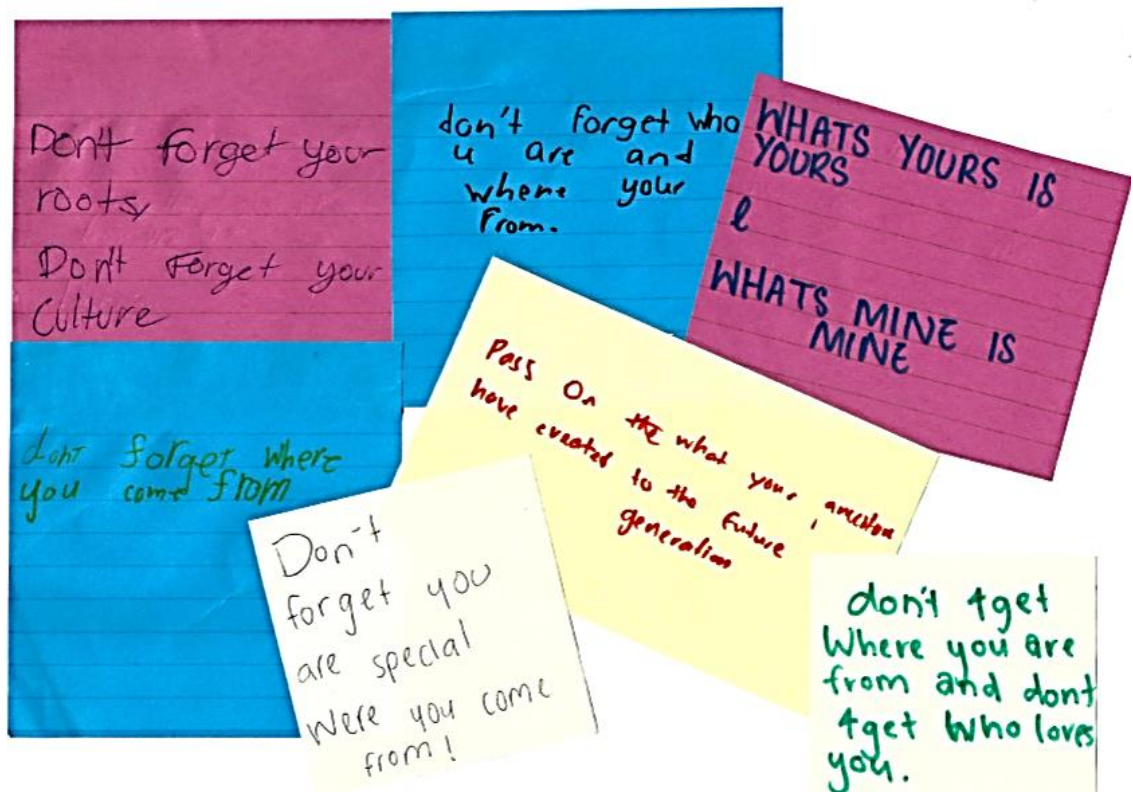 Don't forget your
roots,
Don't Forget your
Culture
don't forget who
u are and
where your
From.
WHATS YOURS IS
YOURS
&
WHATS MINE IS
MINE
dont forget where
you come from
Pass On the what your
have created to the Future
generation
Don't
forget you
are special
Were you come
from!
don't 4get
Where you are
from and dont
4get Who loves
you.